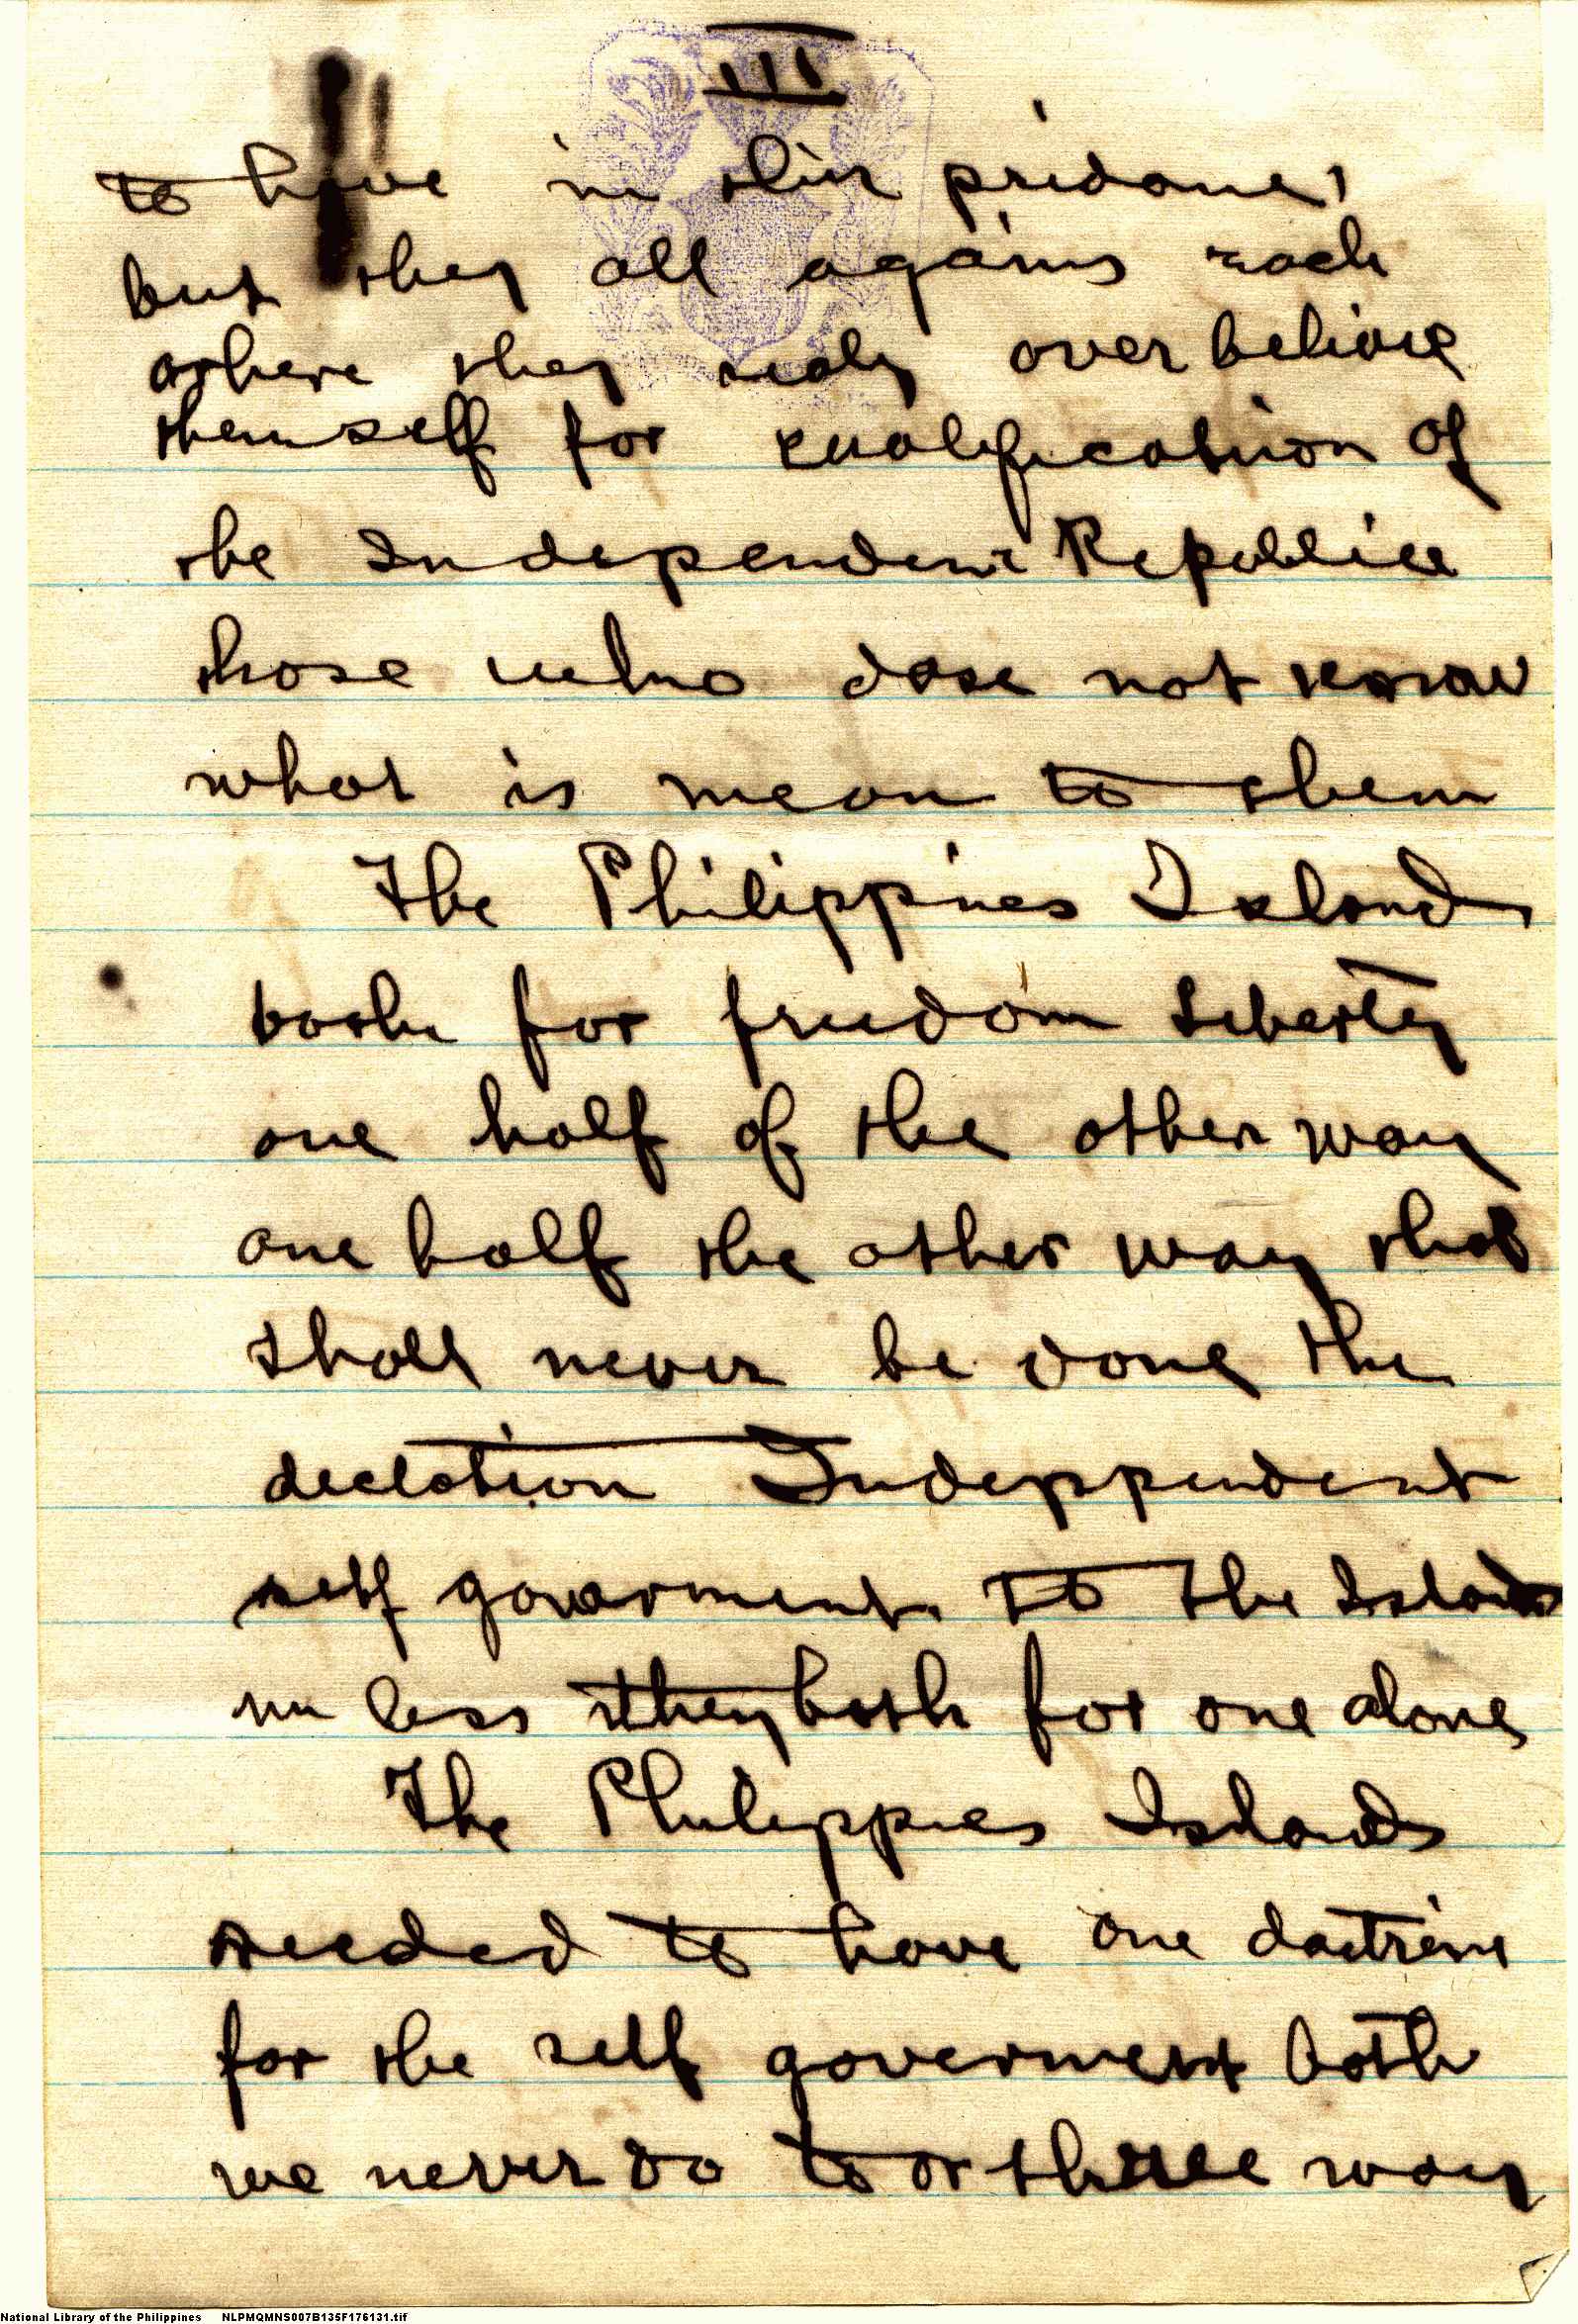 III
to have in thir
but they all agains each
othere they realy over believe
themself for kualification of
the Independent Republice
those who dose not know
what is mean to them
The Philippines Islands
both for freedom Liberty
one half of the other way
one half the other way that
shall never be done the
declation Independent
self goverment to the Islands
un less they both for one alone
The Philippies Islands
needed to have one doctrine
for the self goverment both
we never do to or three way
National Library of the Philippines NLPMQMNS007B135F176131.tif